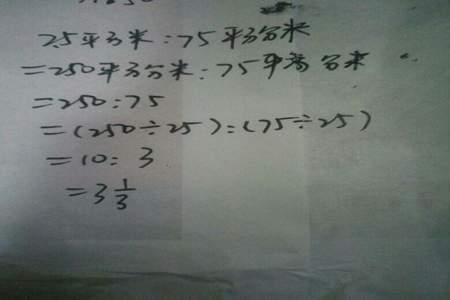 2.5平方米:75平方分米
=250平方分米:75平方分米
=250:75
=(250÷25):(75÷25)
=10:3
=3 1/3